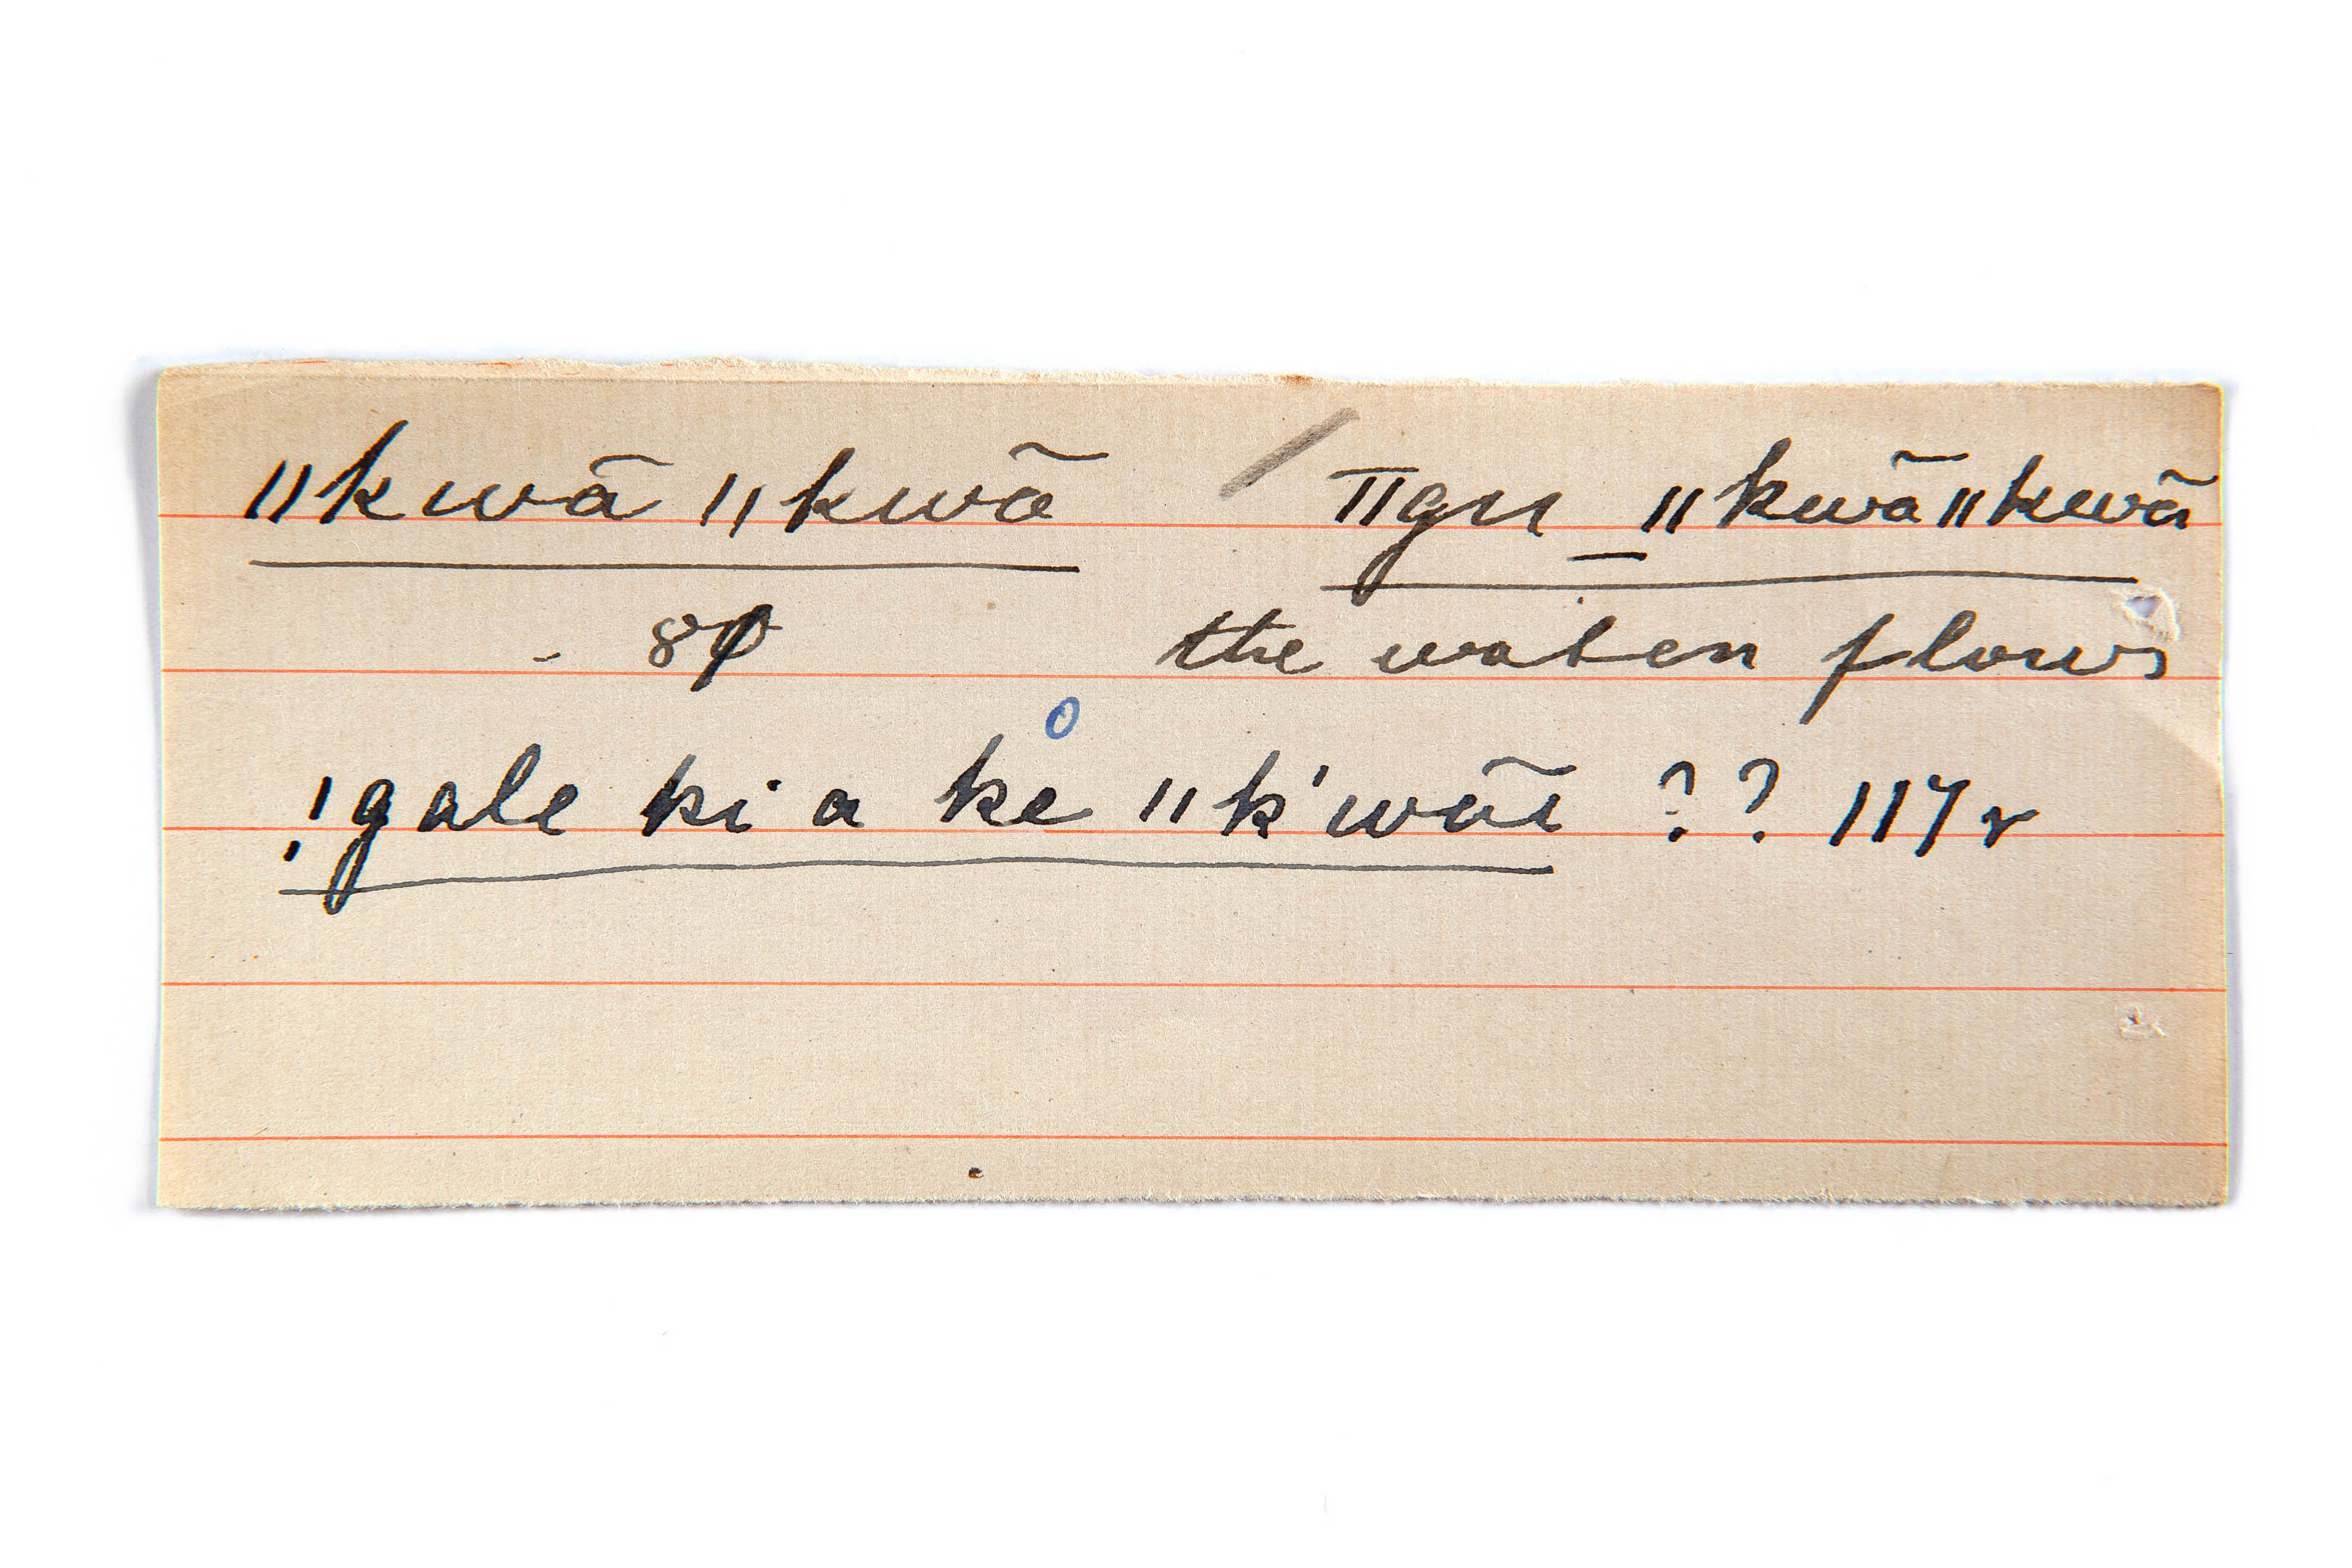 ǁkwā ǁkwā ǁgu _ ǁkwāǁkwā
- 8 the water flows
!gale ki a ke ǁk'wāı ?? 117r